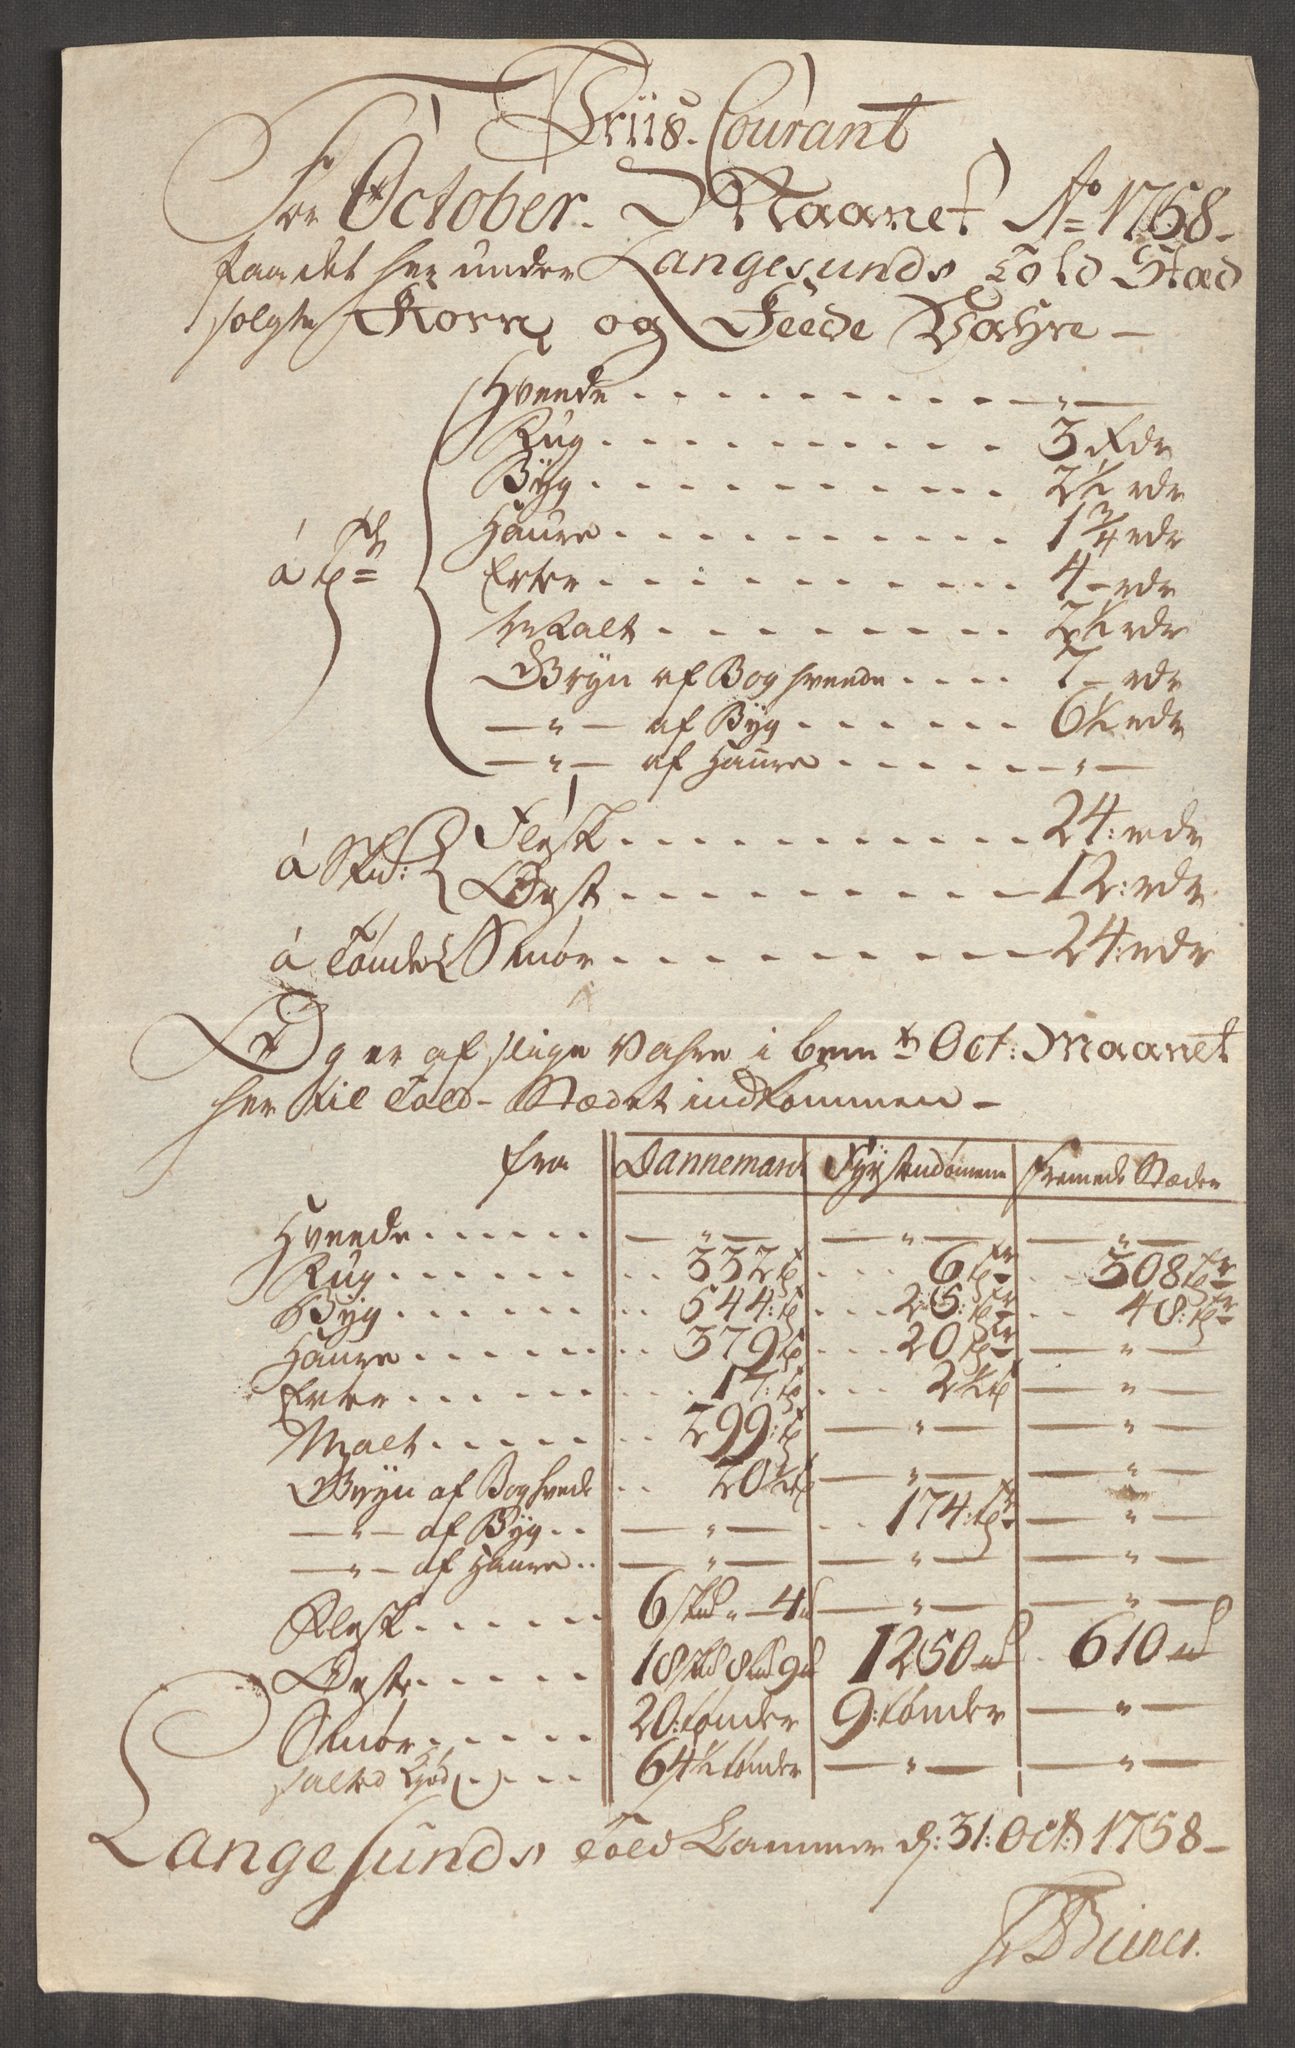 Priis-Courant
For October-Maanet Ao 1758-
paa det her under Langesunds Told Stæd
solgte Korn og Feede Vahre -
Hvede . . . . . . . . . . — " —
Rug . . . . . . . . . . 3 Rdr
Byg . . . . . . . . . . 2½ rdr
Haure . . . . . . . . . . 1¾ rdr
á tr
Erter . . . . . . . . . . 4 - rdr
Malt . . . . . . . . . 2½ rdr
Gryn af Boghvede . . . . 7 - rdr
— " — af Byg . . . . . . . 6½ rdr
— " — af Haure . . . . . . — " —
á Skd: Flesk . . . . . . . . . . 24: rdr
Ost . . . . . . . . . . 12: rdr
á Tønde Smør . . . . . . . . . 24: rdr
Og er af slige Vahre i bemte Oct: Maanet
her til Told-Stædet indkommen -
fra Dannemark Fyrstendømene Fremede Stæder
Hvede . . . . . . — " — — " — — " —
Rug . . . . . . 332 tr 6 tr 308 tr
Byg . . . . . . 544: tr 215: tr 48: tr
Haure . . . . . . 379 tr 20 tr — " —
Erter . . . . . . 17: tr 2½ tr — " —
Malt . . . . . . 299: tr — " — — " —
Gryn af Boghvede . . 20½ tr — " — — " —
— " — af Byg . . — " — 174: tr — " —
— " — af Haure . . — " — — " — — " —
Flesk . . . . . . 6 skd " — 4 — " — — " —
Ost . . . . . 18 skd 8 9 1250 610
Smør . . . . . . 20: tønder 9: tønder — " —
salted Kjød . . . . 64½ tønder — " — — " —
Langesunds Told Cammer d: 31: Oct: 1758-